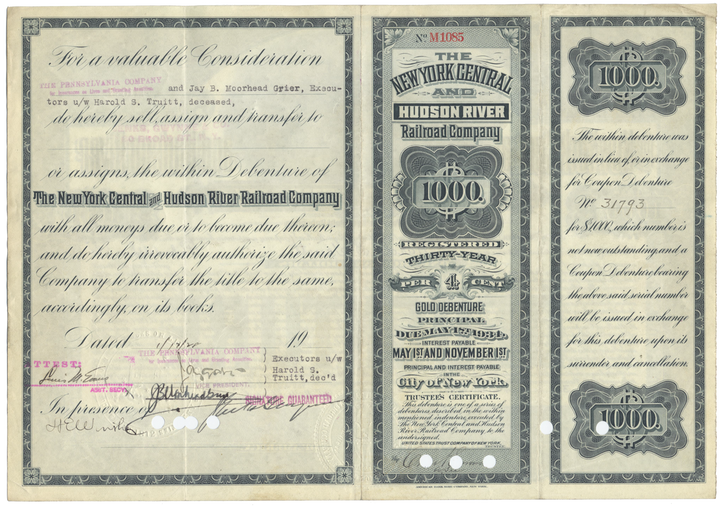 For a valuable Consideration
THE PENNSYLVANIA COMPANY
and Jay B. Moorhead Grier, Execu-
tors u/w Harold S. Truitt, deceased,
do hereby sell, assign and transfer to
or assigns, the within Debenture of
The New York Central and Hudson River Railroad Company
with all moneys due or to become due thereon;
and do hereby irrevocably authorize the said
Company to transfer the title to the same,
accordingly, on its books.
Dated 19
THE PENNSYLVANIA COMPANY
Executors u/w
Harold S.
Truitt, dec'd
TTEST:
VICE PRESIDENT
ASST. SECY.
In presence of
SIGNATURE GUARANTEED
No M1085
THE
NEW YORK CENTRAL
AND
HUDSON RIVER
Railroad Company
1000.
REGISTERED
THIRTY-YEAR
4 PER CENT
GOLD DEBENTURE
PRINCIPAL
DUE MAY 1ST 1934.
INTEREST PAYABLE
MAY 1ST AND NOVEMBER 1ST
PRINCIPAL AND INTEREST PAYABLE
IN THE
City of New York.
TRUSTEE'S CERTIFICATE.
This debenture is one of a series of
debentures, described in the within
mentioned indenture, executed by
The New York Central and Hudson
River Railroad Company, to the
undersigned.
UNITED STATES TRUST COMPANY OF NEW YORK,
By
1000.
The within debenture was
issued in lieu of or in exchange
for Coupon Debenture
No 31793
for $1000, which number is
not now outstanding, and a
Coupon Debenture bearing
the above said serial number
will be issued in exchange
for this debenture upon its
surrender and cancellation.
1000.